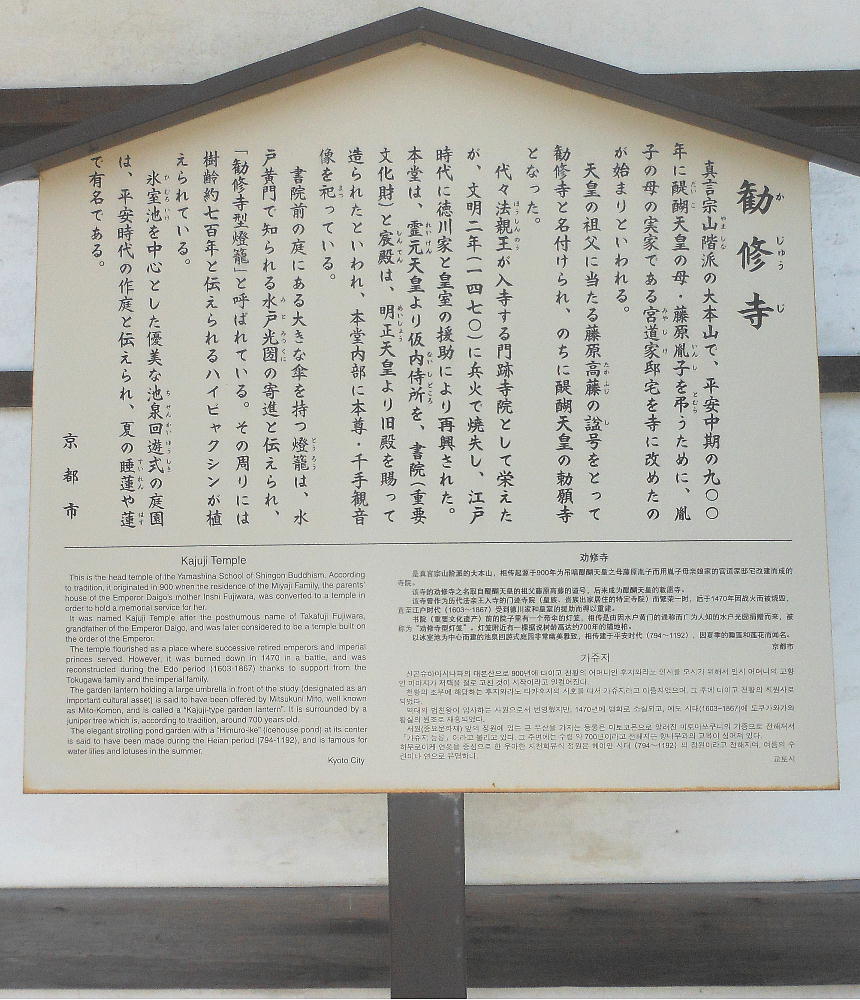 勧修寺
かじゅうじ
真言宗山階派の大本山で、平安中期の九〇〇
年に醍醐天皇の母・藤原胤子を弔うために、胤
子の母の実家である宮道家邸宅を寺に改めたの
が始まりといわれる。
天皇の祖父に当たる藤原高藤の諡号をとって
勧修寺と名付けられ、のちに醍醐天皇の勅願寺
となった。
代々法親王が入寺する門跡寺院として栄えた
が、文明二年(一四七〇)に兵火で焼失し、江戸
時代に徳川家と皇室の援助により再興された。
本堂は、霊元天皇より仮内侍所を、書院(重要
文化財)と宸殿は、明正天皇より旧殿を賜って
造られたといわれ、本堂内部に本尊・千手観音
像を祀っている。
書院前の庭にある大きな傘を持つ燈籠は、水
戸黄門で知られる水戸光圀の寄進と伝えられ、
「勧修寺型燈籠」と呼ばれている。その周りには
樹齢約七百年と伝えられるハイビャクシンが植
えられている。
氷室池を中心とした優美な池泉回遊式の庭園
は、平安時代の作庭と伝えられ、夏の睡蓮や蓮
で有名である。
京都市
Kajuji Temple
This is the head temple of the Yamashina School of Shingon Buddhism. According
to tradition, it originated in 900 when the residence of the Miyaji Family, the parents'
house of the Emperor Daigo's mother Inshi Fujiwara, was converted to a temple in
order to hold a memorial service for her.
It was named Kajuji Temple after the posthumous name of Takafuji Fujiwara,
grandfather of the Emperor Daigo, and was later considered to be a temple built on
the order of the Emperor.
The temple flourished as a place where successive retired emperors and imperial
princes served. However, it was burned down in 1470 in a battle, and was
reconstructed during the Edo period (1603-1867) thanks to support from the
Tokugawa family and the imperial family.
The garden lantern holding a large umbrella in front of the study (designated as an
important cultural asset) is said to have been offered by Mitsukuni Mito, well known
as Mito-Komon, and is called a "Kajuji-type garden lantern". It is surrounded by a
juniper tree which is, according to tradition, around 700 years old.
The elegant strolling pond garden with a "Himuro-ike" (Icehouse pond) at its center
is said to have been made during the Heian period (794-1192), and is famous for
water lilies and lotuses in the summer.
Kyoto City
劝修寺
是真言宗山阶派的大本山，相传起源于900年为吊唁醍醐天皇之母藤原胤子而用胤子母亲娘家的宫道家邸宅改建而成的
寺院。
该寺的劝修寺之名取自醍醐天皇的祖父藤原高藤的谥号，后来成为醍醐天皇的敕愿寺。
直至江户时代（1603～1867）受到德川家和皇室的援助而得以重建。
京都市
가슈지
교토시